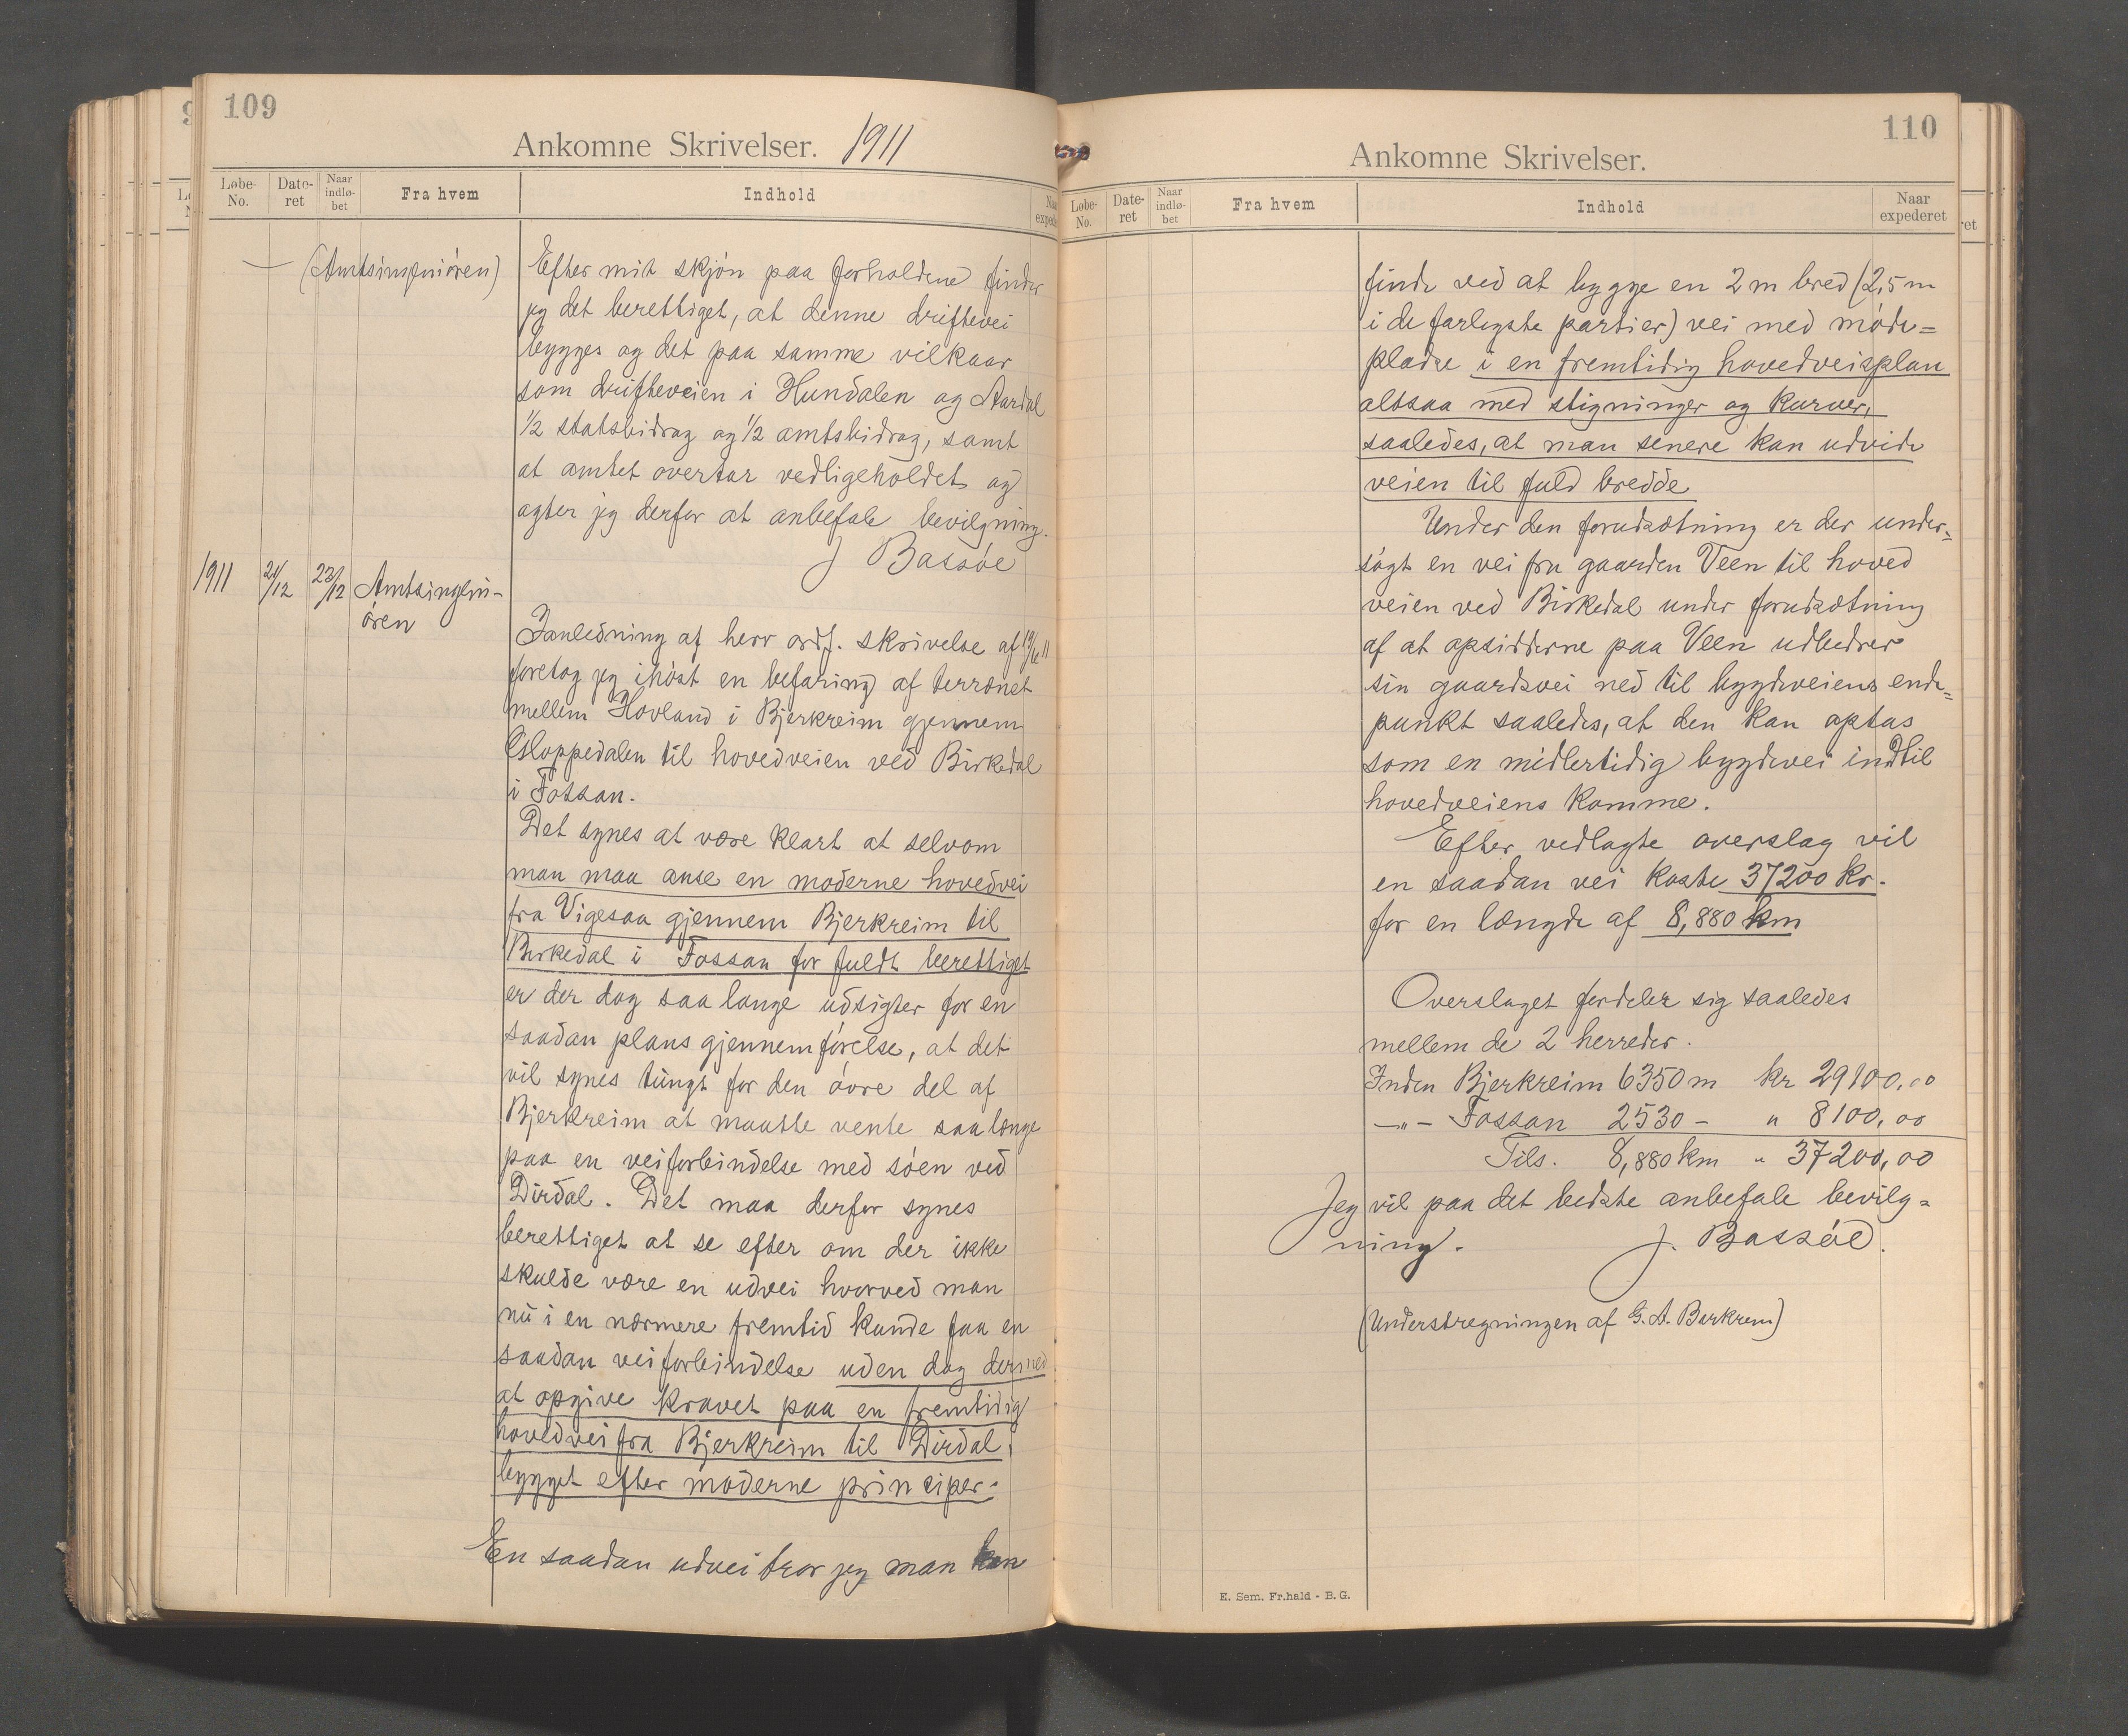 109
Ankomne Skrivelser. 1911
Løbe-No. Date-ret Naar indlø-bet Fra hvem Indhold
(Amtsingeniøren)
Efter mit skjøn paa forholdene finder
jeg det berettiget, at denne driftevei
bygges og det paa samme vilkaar
som drifteveien i Hundalen og Aardal
1/2 statsbidrag og 1/2 amtsbidrag, samt
at amtet overtar vedligeholdet og
agter jeg derfor at anbefale bevilgning.
J Bassøe
1911 21/12 23/12 Amtsingeni-
øren
Ianledning af herr ordf. skrivelse af 19/6 11
foretog jeg ihøst en befaring af terrænet
mellem Hovland i Bjerkreim gjennem
Gloppedalen til hovedveien ved Birkedal
i Fossan.
Det synes at være klart at selvom
man maa anse en moderne hovedvei
fra Vigesaa gjennem Bjerkreim til
Birkedal i Fossan for fuldt berettiget
er der dog saa lange udsigter for en
saadan plans gjennemførelse, at det
vil synes tungt for den øvre del af
Bjerkreim at maatte vente saa længe
paa en veiforbindelse med søen ved
Dirdal. Det maa derfor synes
berettiget at se efter om der ikke
skulde være en udvei hvorved man
nu i en nærmere fremtid kunde faa en
saadan veiforbindelse uden dog dermed
at opgive kravet paa en fremtidig
hovedvei fra Bjerkreim til Dirdal,
bygget efter moderne principer.
En saadan udvei tror jeg man kan
110
Ankomne Skrivelser.
Løbe-No. Date-ret Naar indlø-bet Fra hvem Indhold Naar expederet
finde ved at bygge en 2 m bred (2,5 m
i de farligste partier) vei med møde=
pladse i en fremtidig hovedveisplan
altsaa med stigninger og kurver,
saaledes, at man senere kan udvide
veien til fuld bredde
Under den forudsætning er der under=
søgt en vei fra gaarden Veen til hoved
veien ved Birkedal under forudsætning
af at opsidderne paa Veen udbedrer
sin gaardsvei ned til bygdeveiens ende=
punkt saaledes, at den kan optas
som en midlertidig bygdevei indtil
hovedveiens komme.
Efter vedlagte overslag vil
en saadan vei koste 37200 kr.
for en længde af 8,880 km
Overslaget fordeler sig saaledes
mellem de 2 herreder.
Inden Bjerkreim 6350 m kr 29100,00
-"- Fossan 2530 - " 8100,00
Tils. 8,880 km " 37200,00
Jeg vil paa det bedste anbefale bevilg=
ning. J. Bassøe.
(Understregningen af G. A. Burkrem)
E. Sem. Fr.hald - B. G.